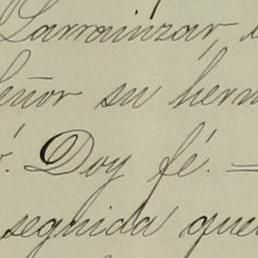 Larrainzar
eñor su herm
Doy fé. =
seguida que